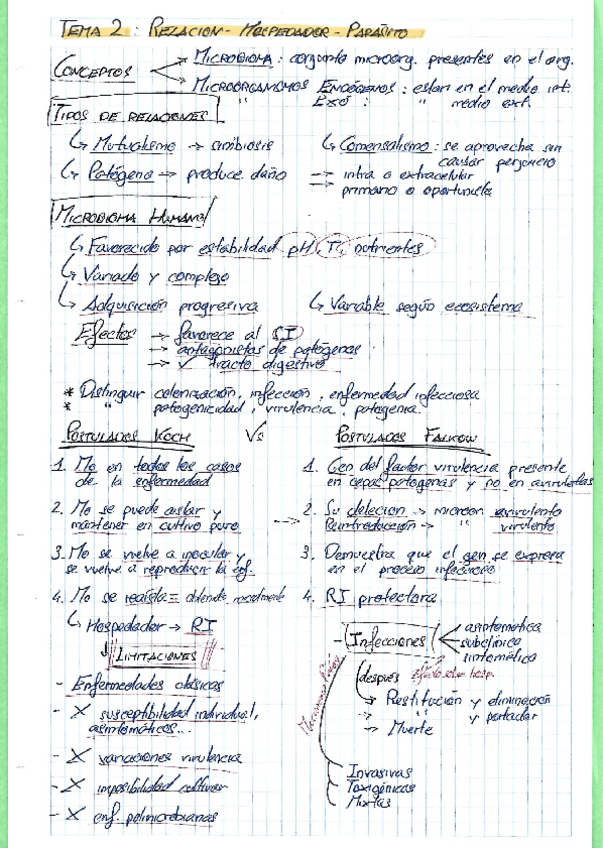 TEMA 2: RELACION - HOSPEDADOR - PARÁSITO
CONCEPTOS
MICROBIOMA: conjunto microorg. presentes en el org.
MICROORGANISMOS ENDÓGENOS: estan en el medio int.
" EXO : " medio ext.
TIPOS DE RELACIONES
↳ Mutualismo → simbiosis
↳ Comensalismo: se aprovecha sin causar perjuicio
↳ Patógeno → produce daño
→ intra o extracelular
→ primario o oportunista
MICROBIOMA HUMANO
↳ Favorecido por estabilidad pH, Tª, nutrientes
↳ Variado y complejo
↳ Adquisición progresiva
↳ Variable según ecosistema
Efectos → favorece al SI
→ antagonistas de patógenos
→ ✓ tracto digestivo
* Distinguir colonización, infección, enfermedad infecciosa
* " patogenicidad, virulencia, patogenia.
POSTULADOS KOCH Vs POSTULADOS FALKOW
1. Mo en todos los casos
de la enfermedad
2. Mo se puede aislar y
mantener en cultivo puro
3. Mo se vuelve a inocular y
se vuelve a reproducir la enf.
4. Mo se reaisla = obtenido inicialmente
↳ Hospedador → RI
1. Gen del factor virulencia presente
en cepas patógenas y no en avirulentas
2. Su deleción → microorn avirulento
Reintroducción → " virulento
3. Demuestra que el gen se expresa
en el proceso infeccioso
4. RI protectora
LIMITACIONES
- Enfermedades clásicas
- X susceptibilidad individual,
asintomáticos...
- X variaciones virulencia
- X imposibilidad cultivar
- X enf. polimicrobianas
- Infecciones
asintomática
subclínica
sintomática
después
→ Restitución y eliminación
→ " y portador
→ Muerte
Invasivas
Toxigénicas
Mixtas